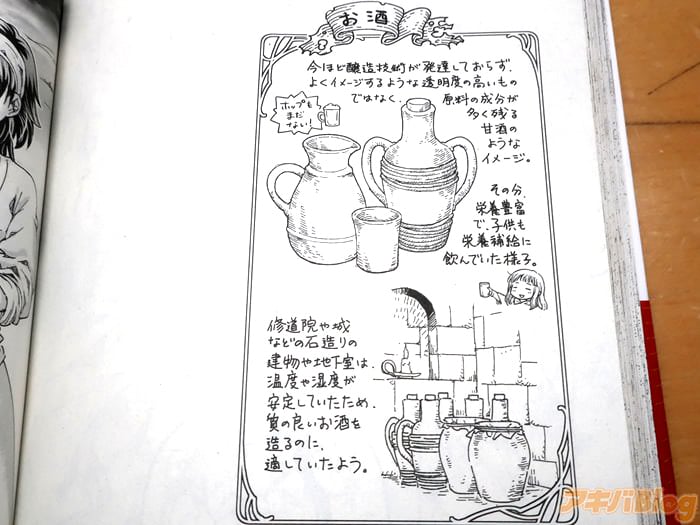 お酒
今ほど醸造技術が発達しておらず、
よくイメージするような透明度の高いもの
ではなく、原料の成分が
多く残る
甘酒の
ような
イメージ。
ホップも
まだ
ない！
その分、
栄養豊富
で、子供も
栄養補給に
飲んでいた様子。
修道院や城
などの石造りの
建物や地下室は、
温度や湿度が
安定していたため、
質の良いお酒を
造るのに、
適していたよう。
アキバBlog